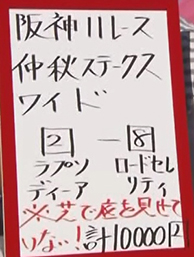 阪神11レース
仲秋ステークス
ワイド
2 - 8
ラプソ ロードセレ
ディーア リティ
※芝で底を見せて
いない!計10000円